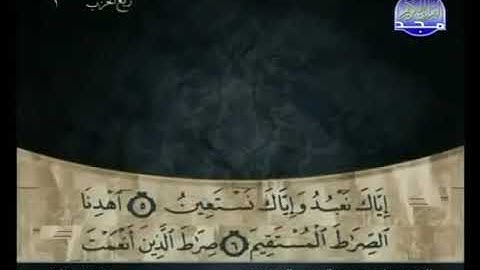 ربع الحزب ١
مجد
إِيَّاكَ نَعْبُدُ وَإِيَّاكَ نَسْتَعِينُ ٥ ٱهْدِنَا
ٱلصِّرَٰطَ ٱلْمُسْتَقِيمَ ٦ صِرَٰطَ ٱلَّذِينَ أَنْعَمْتَ